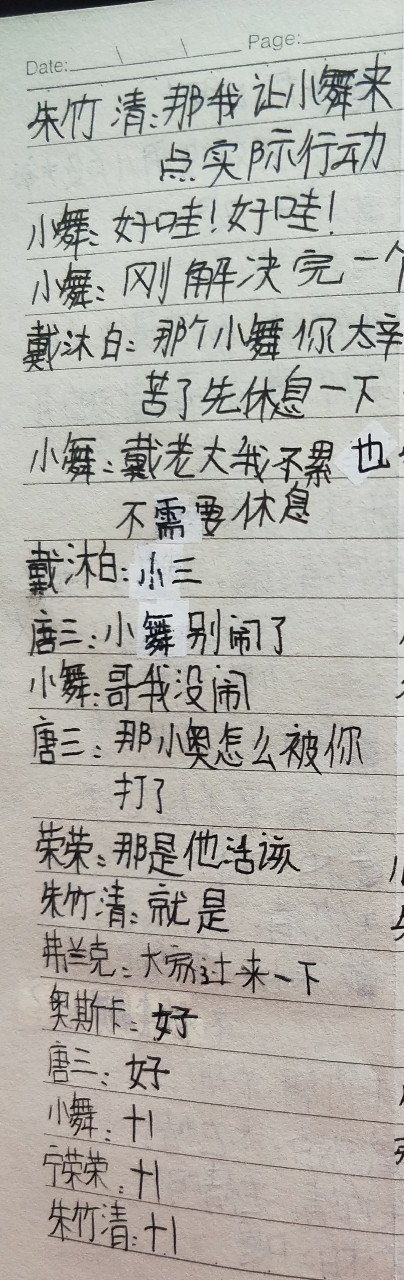 Date:
Page:
朱竹清:那我让小舞来
点实际行动
小舞:好哇!好哇!
小舞:刚解决完一个
戴沐白:那个小舞你太辛
苦了先休息一下
小舞:戴老大我不累也
不需要休息
戴沐白:小三
唐三:小舞别闹了
小舞:哥我没闹
唐三:那小奥怎么被你
打了
荣荣:那是他活该
朱竹清:就是
弗兰克:大家过来一下
奥斯卡:好
唐三:好
小舞:十1
宁荣荣:十1
朱竹清:十1